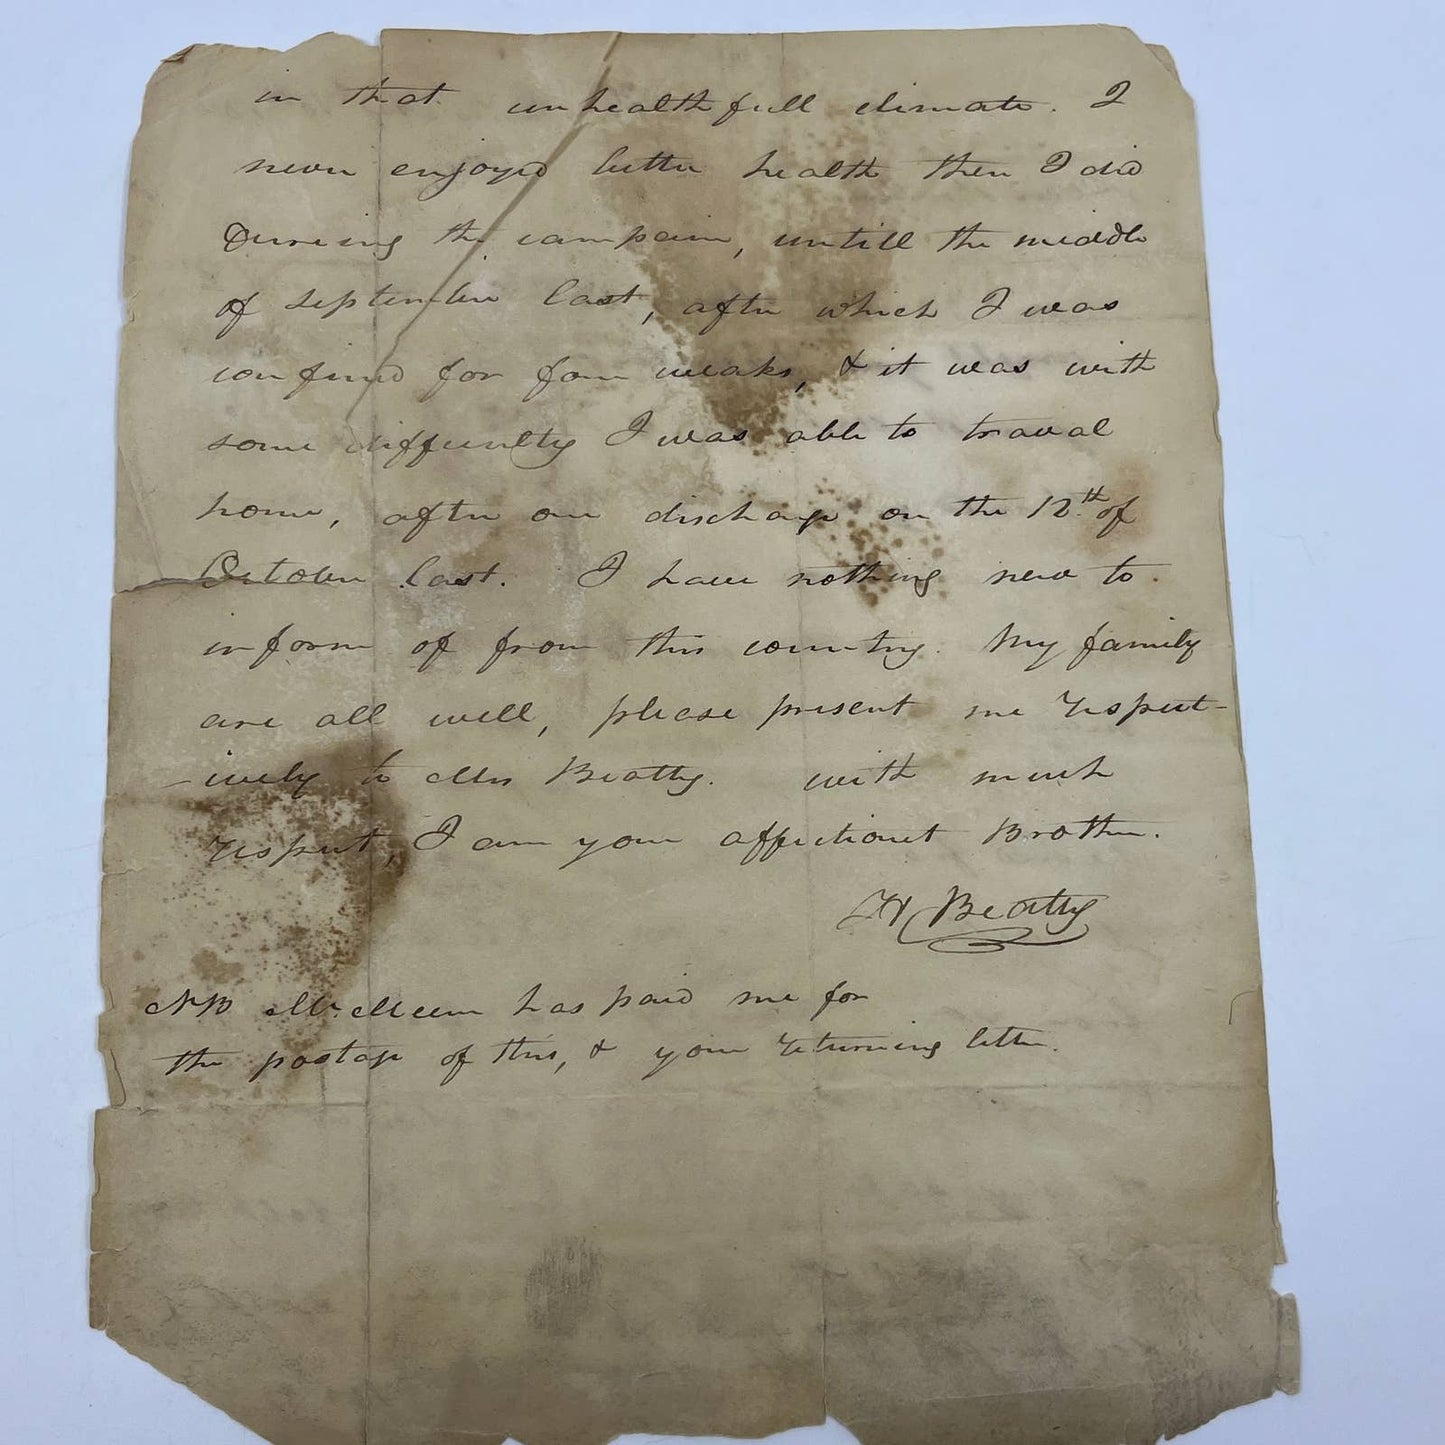 in that unhealthfull climate. I
never enjoyd better health then I did
Dureing the campain, untill the middle
of september last, after which I was
confined for four weaks, & it was with
some difficulty I was able to traval
home, after our discharge on the 12th of
October last. I have nothing new to
inform of from this country. My family
are all well, please present me respect-
-ively to Mrs Beatty. with much
respect, I am your affectionet Brother.
H Beatty
NB Mr. Meem has paid me for
the postage of this, & your returning letter.